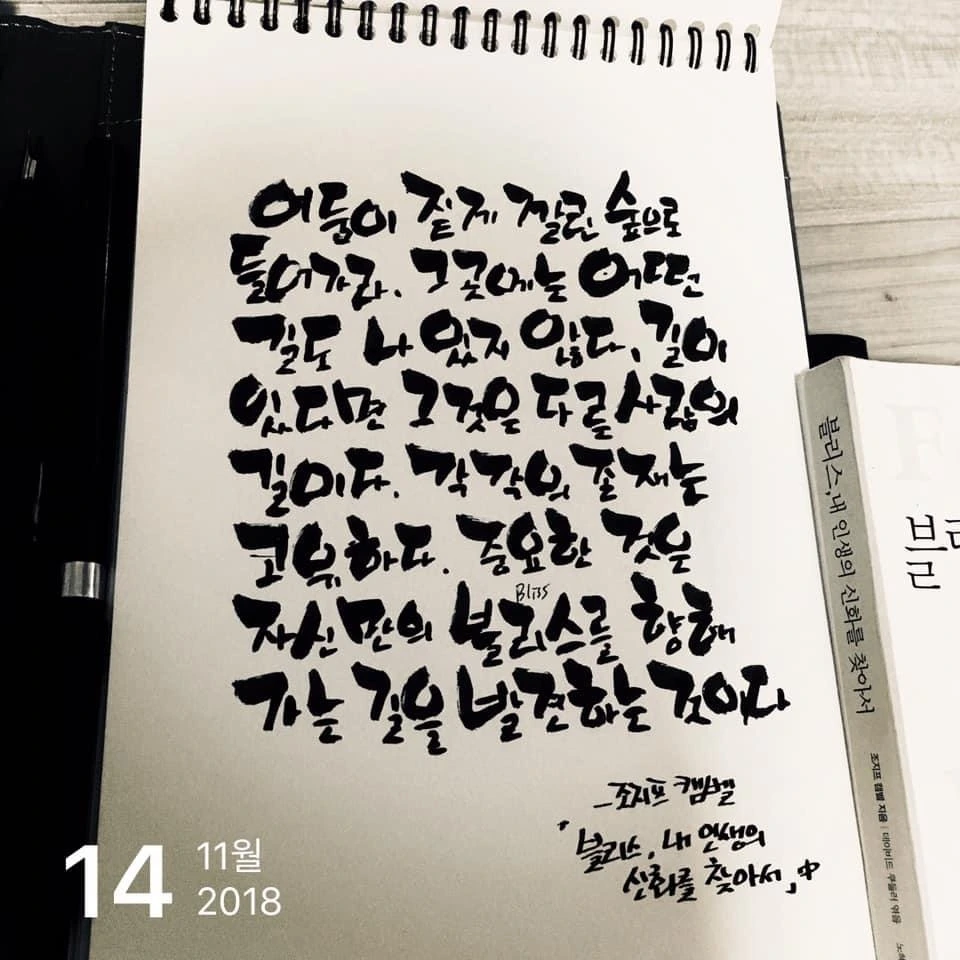 어둠이 짙게 깔린 숲으로
들어가라. 그곳에는 어떤
길도 나 있지 않다. 길이
있다면 그것은 다른사람의
길이다. 각각의 존재는
고유하다. 중요한 것은
Bliss
자신만의 블리스를 향해
가는 길을 발견하는 것이다
_조지프 캠벨
「블리스, 내 인생의
신화를 찾아서」中
14
11월
2018
블리스, 내 인생의 신화를 찾아서
조지프 캠벨 지음 | 데이비드 쿠들러 엮음
F
블리